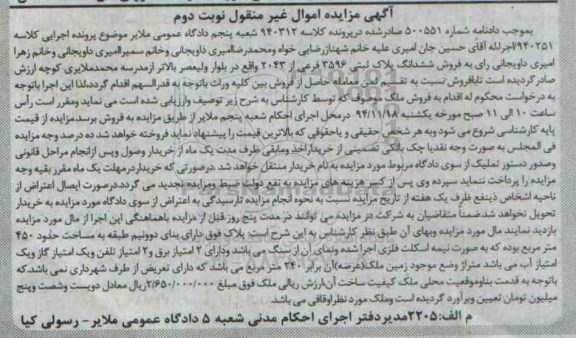 آگهی مزایده اموال غیر منقول نوبت دوم
بموجب دادنامه شماره ۵۰۰۵۵۱ صادرشده درپرونده کلاسه ۹۴۰۳۱۲ شعبه پنجم دادگاه عمومی ملایر موضوع پرونده اجرایی کلاسه
۹۴۰۲۵۱/اجرا له آقای حسین جان امیری علیه خانم شهنازرضایی خواه ومحمدرضاامیری داویجانی وخانم سمیراامیری داویجانی وخانم زهرا
امیری داویجانی رای به فروش ششدانگ پلاک ثبتی ۳۵۹۶ فرعی از ۲۰۴۳ واقع در بلوار ولیعصر بالاتر ازمدرسه محمدملایری کوچه ارزش
صادر گردیده است تابافروش نسبت به تقسیم ثمن معامله حاصل از فروش بین کلیه وراث باتوجه به قدرالسهم اقدام گردد.لذا این اجرا باتوجه
به درخواست محکوم له اقدام به فروش ملک موصوف که توسط کارشناس به شرح زیر توصیف وارزیابی شده است می نماید ومقرر است رأس
ساعت ۱۰ الی ۱۱ صبح مورخه یکشنبه ۹۴/۱۱/۱۸ درمحل اجرای احکام شعبه پنجم ملایر از طریق مزایده به فروش برسد.مزایده از قیمت
پایه کارشناسی شروع می شود وبه هر شخص حقیقی و یاحقوقی که بالاترین قیمت را پیشنهاد نماید فروخته خواهد شد ده درصد وجه مزایده
فی المجلس به صورت وجه نقدیا چک بانکی تضمینی از خریداراخذ ومابقی ظرف مدت یک ماه از خریدار وصول وپس ازانجام مراحل قانونی
وصدور دستور تملیک از سوی دادگاه مربوط مورد مزایده به نام خریدار منتقل خواهد شد .درصورتی که خریداردرمهلت یک ماه مقرر بقیه وجه
مزایده را پرداخت ننماید سپرده وی پس از کسر هزینه های مزایده به نفع دولت ضبط ومزایده تجدید می گردد.درصورت ایصال اعتراض از
ناحیه اشخاص ذینفع ظرف یک هفته از تاریخ مزایده نسبت به نحوه انجام مزایده تارسیدگی به اعتراض از سوی دادگاه مورد مزایده به خریدار
تحویل نخواهد شد.ضمنا متقاضیان به شرکت در مزایده می توانند در مدت پنج روز قبل از مزایده باهماهنگی این اجرا از مال مورد مزایده
بازدید نمایند مال مورد مزایده وبهای آن طبق نظر کارشناس به این شرح است: پلاک فوق دارای بنای دوونیم طبقه به مساحت حدود ۴۵۰
متر مربع بوده که به صورت نیمه اسکلت فلزی اجرا شده ونمای آن از سنگ می باشد ودارای ۲ امتیاز برق و۲ امتیاز تلفن ویک امتیاز گاز ویک
امتیاز آب می باشد متراژ وضع موجود زمین ملک(عرصه)آن برابر ۲۴۰ متر مربع می باشد که دارای تعریض از طرف شهرداری نمی باشد که
باتوجه به قدمت بناوموقعیت محلی ملک کیفیت ساخت آن ارزش ریالی ملک فوق مبلغ ۲/۶۵۰/۰۰۰/۰۰۰ریال معادل دویست وشصت وپنج
میلیون تومان تعیین وبرآورد گردیده است وملک مورد نظراوقافی می باشد.
م الف:۲۲۰۵مدیردفتر اجرای احکام مدنی شعبه ۵ دادگاه عمومی ملایر- رسولی کیا